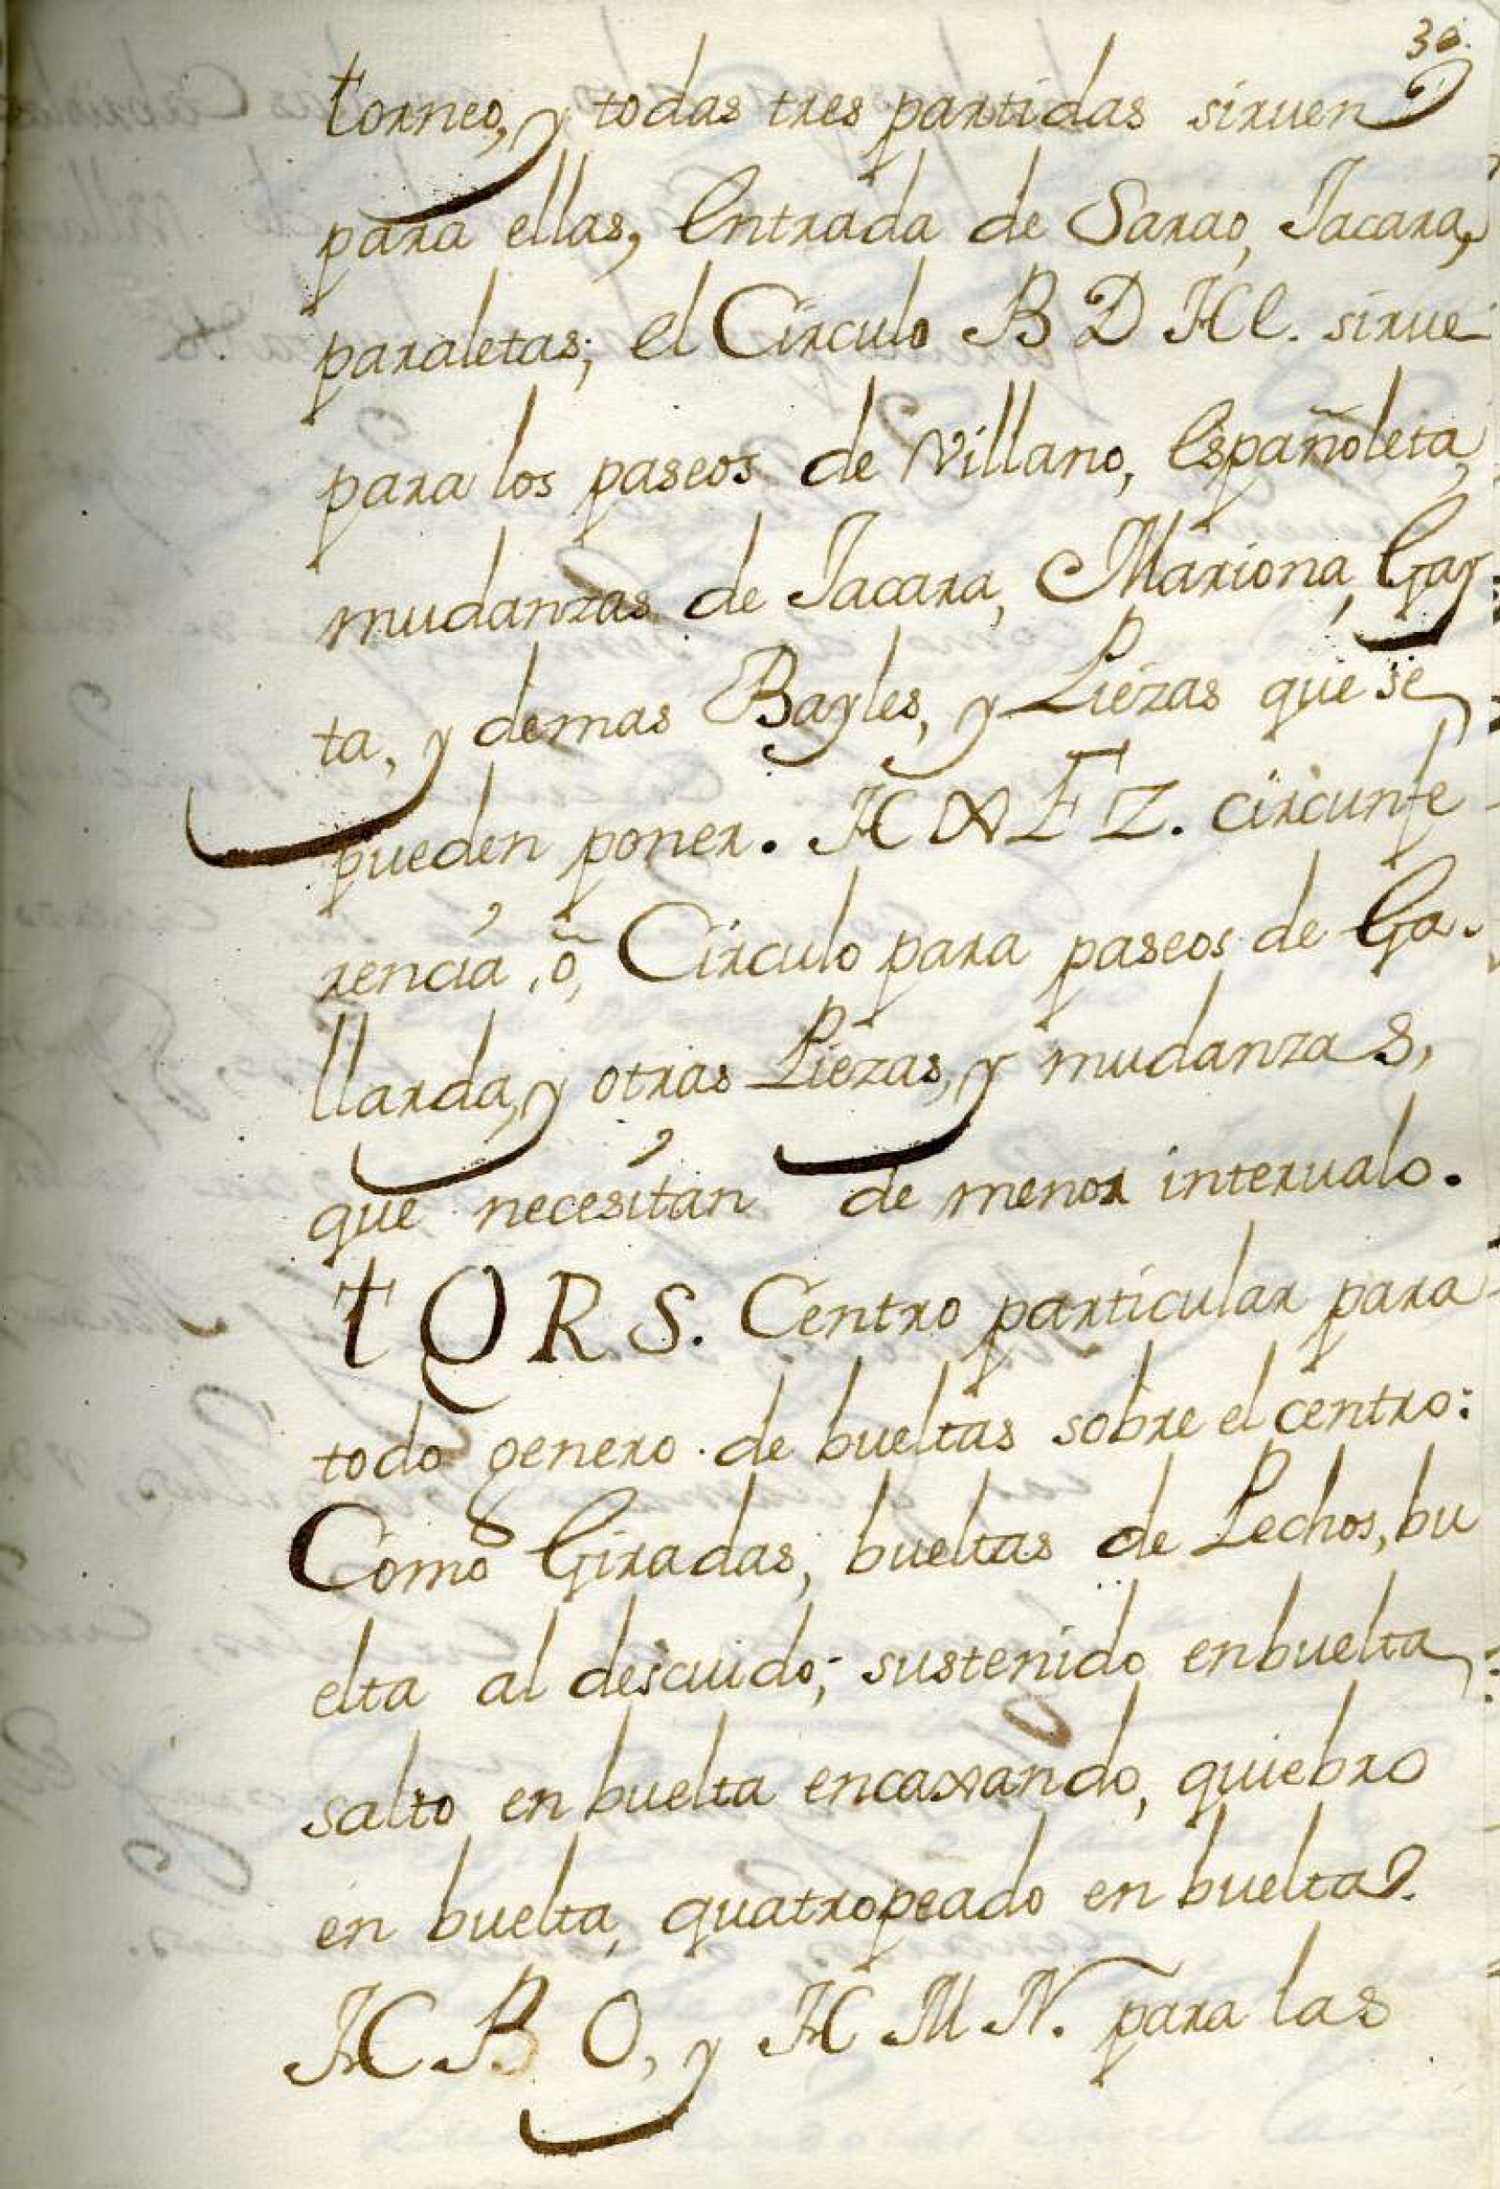 30.
torneo, y todas tres partidas siruen
para ellas, Entrada de Sarao, Jacara,
paraletas; el Circulo B D H C. sirue
para los paseos de Villano, Españoleta,
mudanzas de Jacara, Mariona, Gay
ta, y demas Bayles, y Piezas que se
pueden poner. H X E Z. circunfe
rencia, õ, Circulo para paseos de Ga-
llarda, y otras Piezas, y mudanzas,
que necesitan de menor interualo.
T Q R S. Centro particular para
todo genero de bueltas sobre el centro:
Como Giradas, bueltas de Pechos, bu
elta al descuido; sustenido en buelta,
salto en buelta encaxando, quiebro
en buelta, quatropeado en buelta.
H B O, y H M N. para las